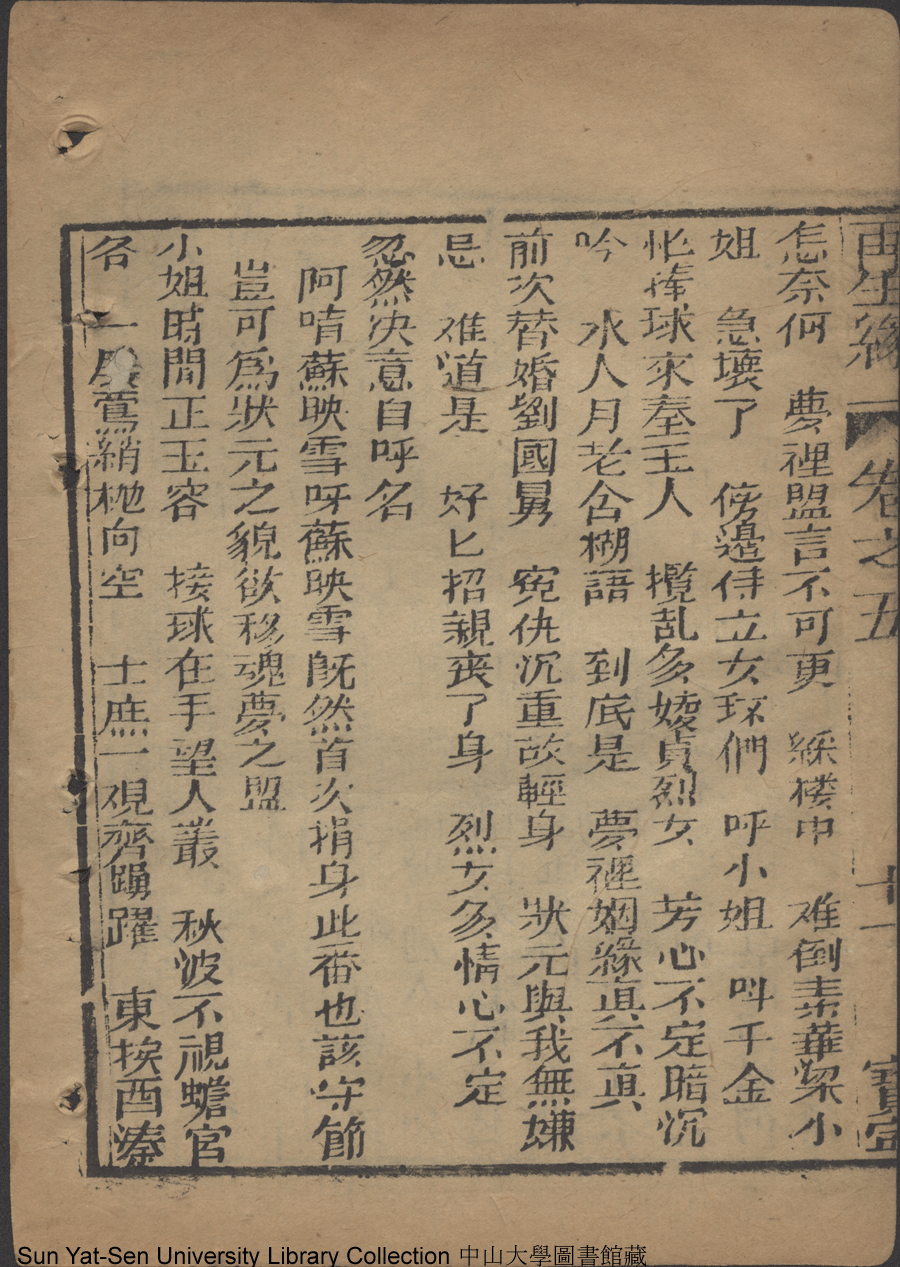 再生緣 卷之五 十一 寶寧
怎奈何 夢裡盟言不可更 綵楼中 难倒素華梁小
姐 急壞了 傍邊侍立女环們 呼小姐 呌千金
忙捧球來奉主人 攬乱多嬌貞烈女 芳心不定暗沉
吟 氷人月老含糊語 到底是 夢裡姻緣真不真
前次替婚劉國舅 寃仇沉重故輕身 狀元與我無嫌
忌 难道是 好匕招親丧了身 烈女多情心不定
忽然决意自呼名
阿唷蘇映雪呀蘇映雪既然首次捐身此番也該守節
豈可爲狀元之貌欲移魂夢之盟
小姐時間正玉容 接球在手望人叢 秋波不視蟾宫
客 一展鶯綃抛向空 士庶一观齊踴躍 東挨酉湊
Sun Yat-Sen University Library Collection 中山大學圖書館藏